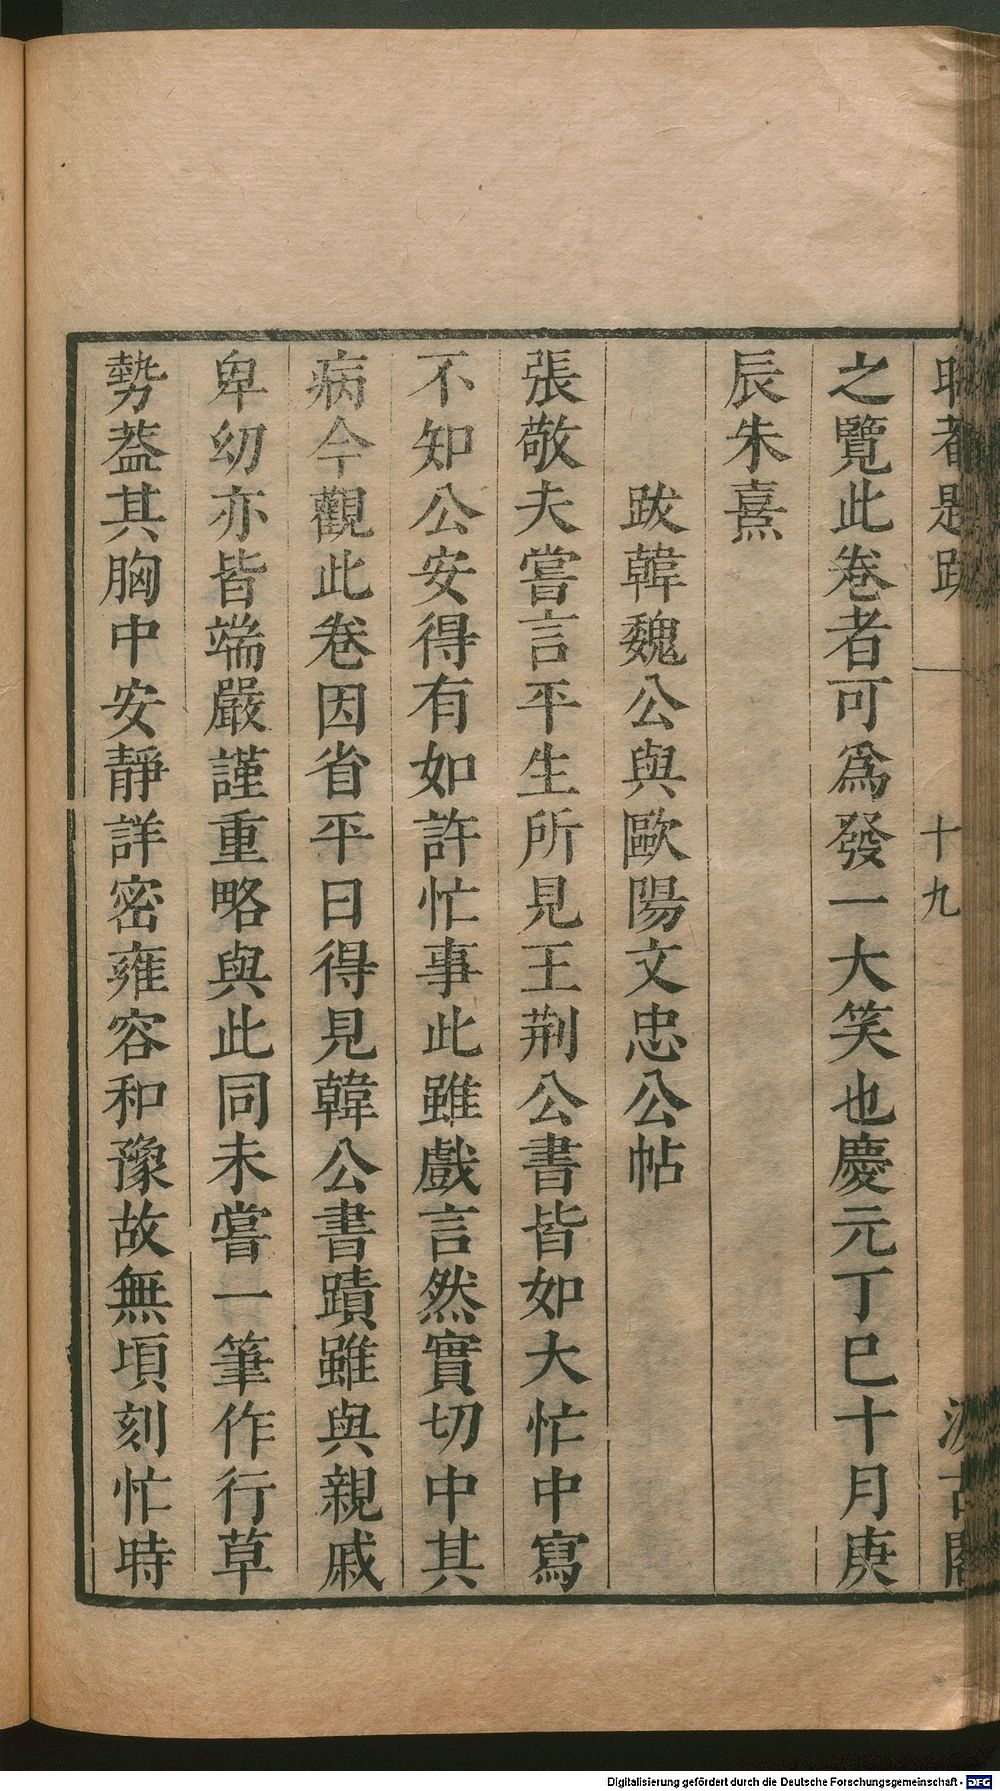 是跋
十九
古閣
之覽此卷者可爲發一大笑也慶元丁巳十月庚
辰朱熹
跋韓魏公與歐陽文忠公帖
張敬夫嘗言平生所見王荆公書皆如大忙中寫
不知公安得有如許忙事此雖戲言然實切中其
病今觀此卷因省平日得見韓公書蹟雖與親戚
卑幼亦皆端嚴謹重略與此同未嘗一筆作行草
勢葢其胸中安靜詳密雍容和豫故無頃刻忙時
Digitalisierung gefördert durch die Deutsche Forschungsgemeinschaft - DFG